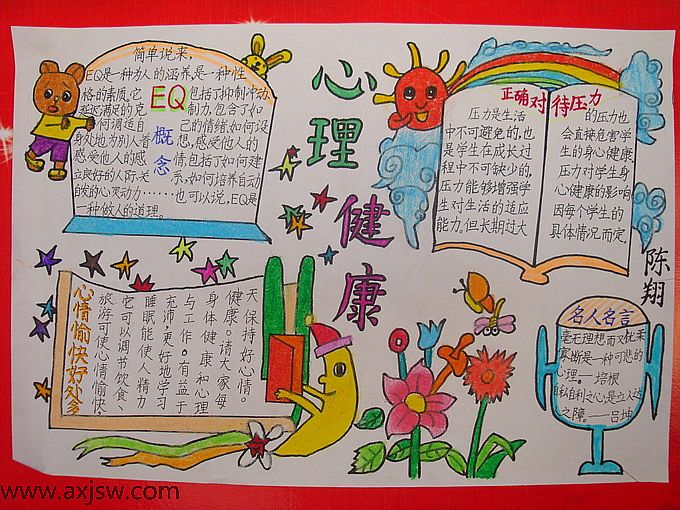 心理健康
简单说来,
EQ是一种为人的涵养,是一种性
格的素质,它
延迟满足的克
何调适自
身处地为别人着
感受他人的感
立良好的人际关
EQ
概念
包括了抑制冲动
制力,包含了如
己的情绪,如何设
想,感受他人的
情,包括了如何建
系,如何培养自动
自发的心灵动力……也可以说,EQ是
一种做人的道理。
正确对待压力
压力是生活
中不可避免的,也
是学生在成长过
程中不可缺少的,
压力能够增强学
生对生活的适应
能力,但长期过大
的压力也
会直接危害学
生的身心健康,
压力对学生身
心健康的影响
因每个学生的
具体情况而定.
陈翔
心情愉快好处多
旅游可使心情愉快.
它可以调节饮食、
睡眠能使人精力
充沛,更好地学习
与工作。有益于
身体健康和心理
健康。请大家每
天保持好心情。
名人名言
毫无理想而又优柔
寡断是一种可悲的
心理。——培根
自私自利之心,是立人达人
之障。——吕坤
www.axjsw.com